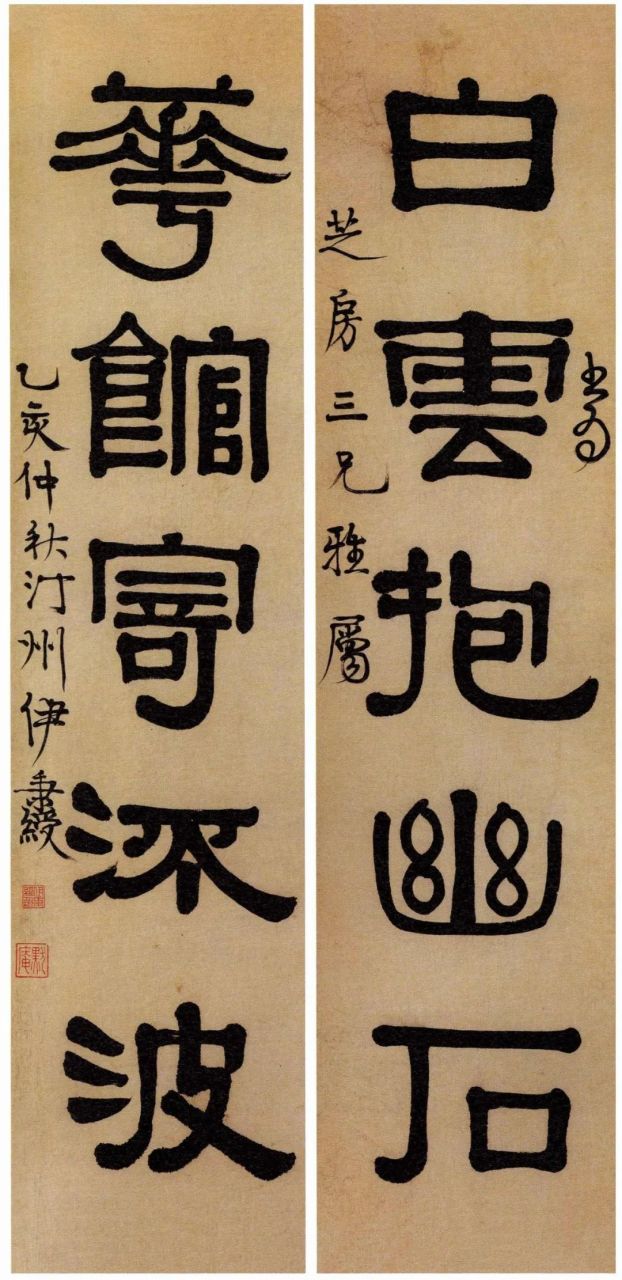 書為
白雲抱幽石
芝房三兄雅屬
華館寄流波
乙亥仲秋汀州伊秉綬